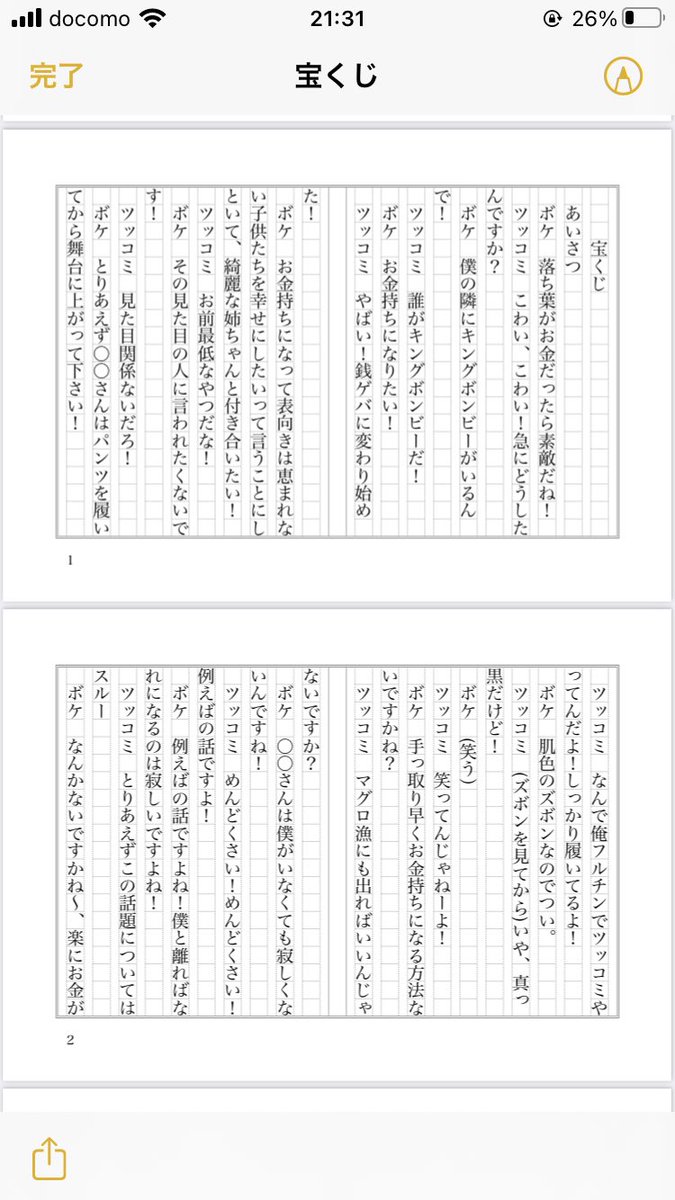 docomo
21:31
26%
完了
宝くじ
宝くじ
あいさつ
ボケ 落ち葉がお金だったら素敵だね！
ツッコミ こわい、こわい！急にどうした
んですか？
ボケ 僕の隣にキングボンビーがいるん
で！
ツッコミ 誰がキングボンビーだ！
ボケ お金持ちになりたい！
ツッコミ やばい！銭ゲバに変わり始め
た！
ボケ お金持ちになって表向きは恵まれな
い子供たちを幸せにしたいって言うことにし
といて、綺麗な姉ちゃんと付き合いたい！
ツッコミ お前最低なやつだな！
ボケ その見た目の人に言われたくないで
す！
ツッコミ 見た目関係ないだろ！
ボケ とりあえず〇〇さんはパンツを履い
てから舞台に上がって下さい！
1
ツッコミ なんで俺フルチンでツッコミや
ってんだよ！しっかり履いてるよ！
ボケ 肌色のズボンなのでつい。
ツッコミ (ズボンを見てから)いや、真っ
黒だけど！
ボケ (笑う)
ツッコミ 笑ってんじゃねーよ！
ボケ 手っ取り早くお金持ちになる方法な
いですかね？
ツッコミ マグロ漁にも出ればいいんじゃ
ないですか？
ボケ 〇〇さんは僕がいなくても寂しくな
いんですね！
ツッコミ めんどくさい！めんどくさい！
例えばの話ですよ！
ボケ 例えばの話ですよね！僕と離ればな
れになるのは寂しいですよね！
ツッコミ とりあえずこの話題については
スルー
ボケ なんかないですかね〜、楽にお金が
2